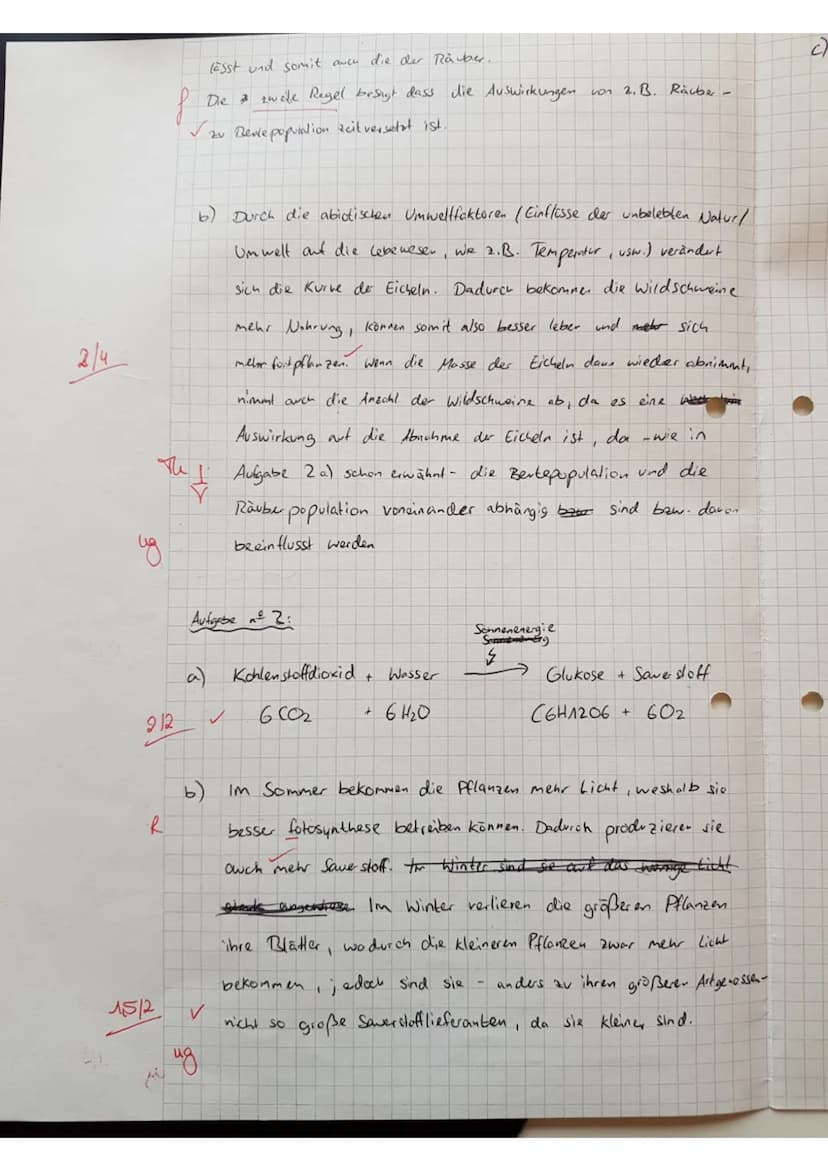 lässt und somit auch die der Räuber.
c)
f Die zweite Regel besagt dass die Auswirkungen von z.B. Räuber-
✓ zu Beutepopulation zeitversetzt ist.
b) Durch die abiotischen Umweltfaktoren (Einflüsse der unbelebten Natur/
Umwelt auf die Lebewesen, wie z.B. Temperatur, usw.) verändert
sich die Kurve der Eicheln. Dadurch bekommen die Wildschweine
mehr Nahrung, können somit also besser leben und mehr sich
2/4 mehr fortpflanzen. ✓ Wenn die Masse der Eicheln dann wieder abnimmt,
nimmt auch die Anzahl der Wildschweine ab, da es eine
Auswirkung auf die Abnahme der Eicheln ist, da -wie in
Aufgabe 2a) schon erwähnt- die Beutepopulation und die
Räuberpopulation voneinander abhängig bzw. sind bzw. davon
ug beeinflusst werden
Aufgabe nº 2:
Sonnenenergie
a) Kohlenstoffdioxid + Wasser → Glukose + Sauerstoff
2/2 ✓ 6 CO2 + 6 H2O C6H12O6 + 6O2
b) Im Sommer bekommen die Pflanzen mehr Licht, weshalb sie
R besser fotosynthese betreiben können. Dadurch produzieren sie
auch ✓ mehr Sauerstoff. Im Winter sind sie auf das wenige Licht
Im Winter verlieren die größeren Pflanzen
ihre Blätter, wodurch die kleineren Pflanzen zwar mehr Licht
bekommen, jedoch sind sie - anders zu ihren größeren Artgenossen-
1,5/2 ✓ nicht so große Sauerstofflieferanten, da sie kleiner sind.
ug